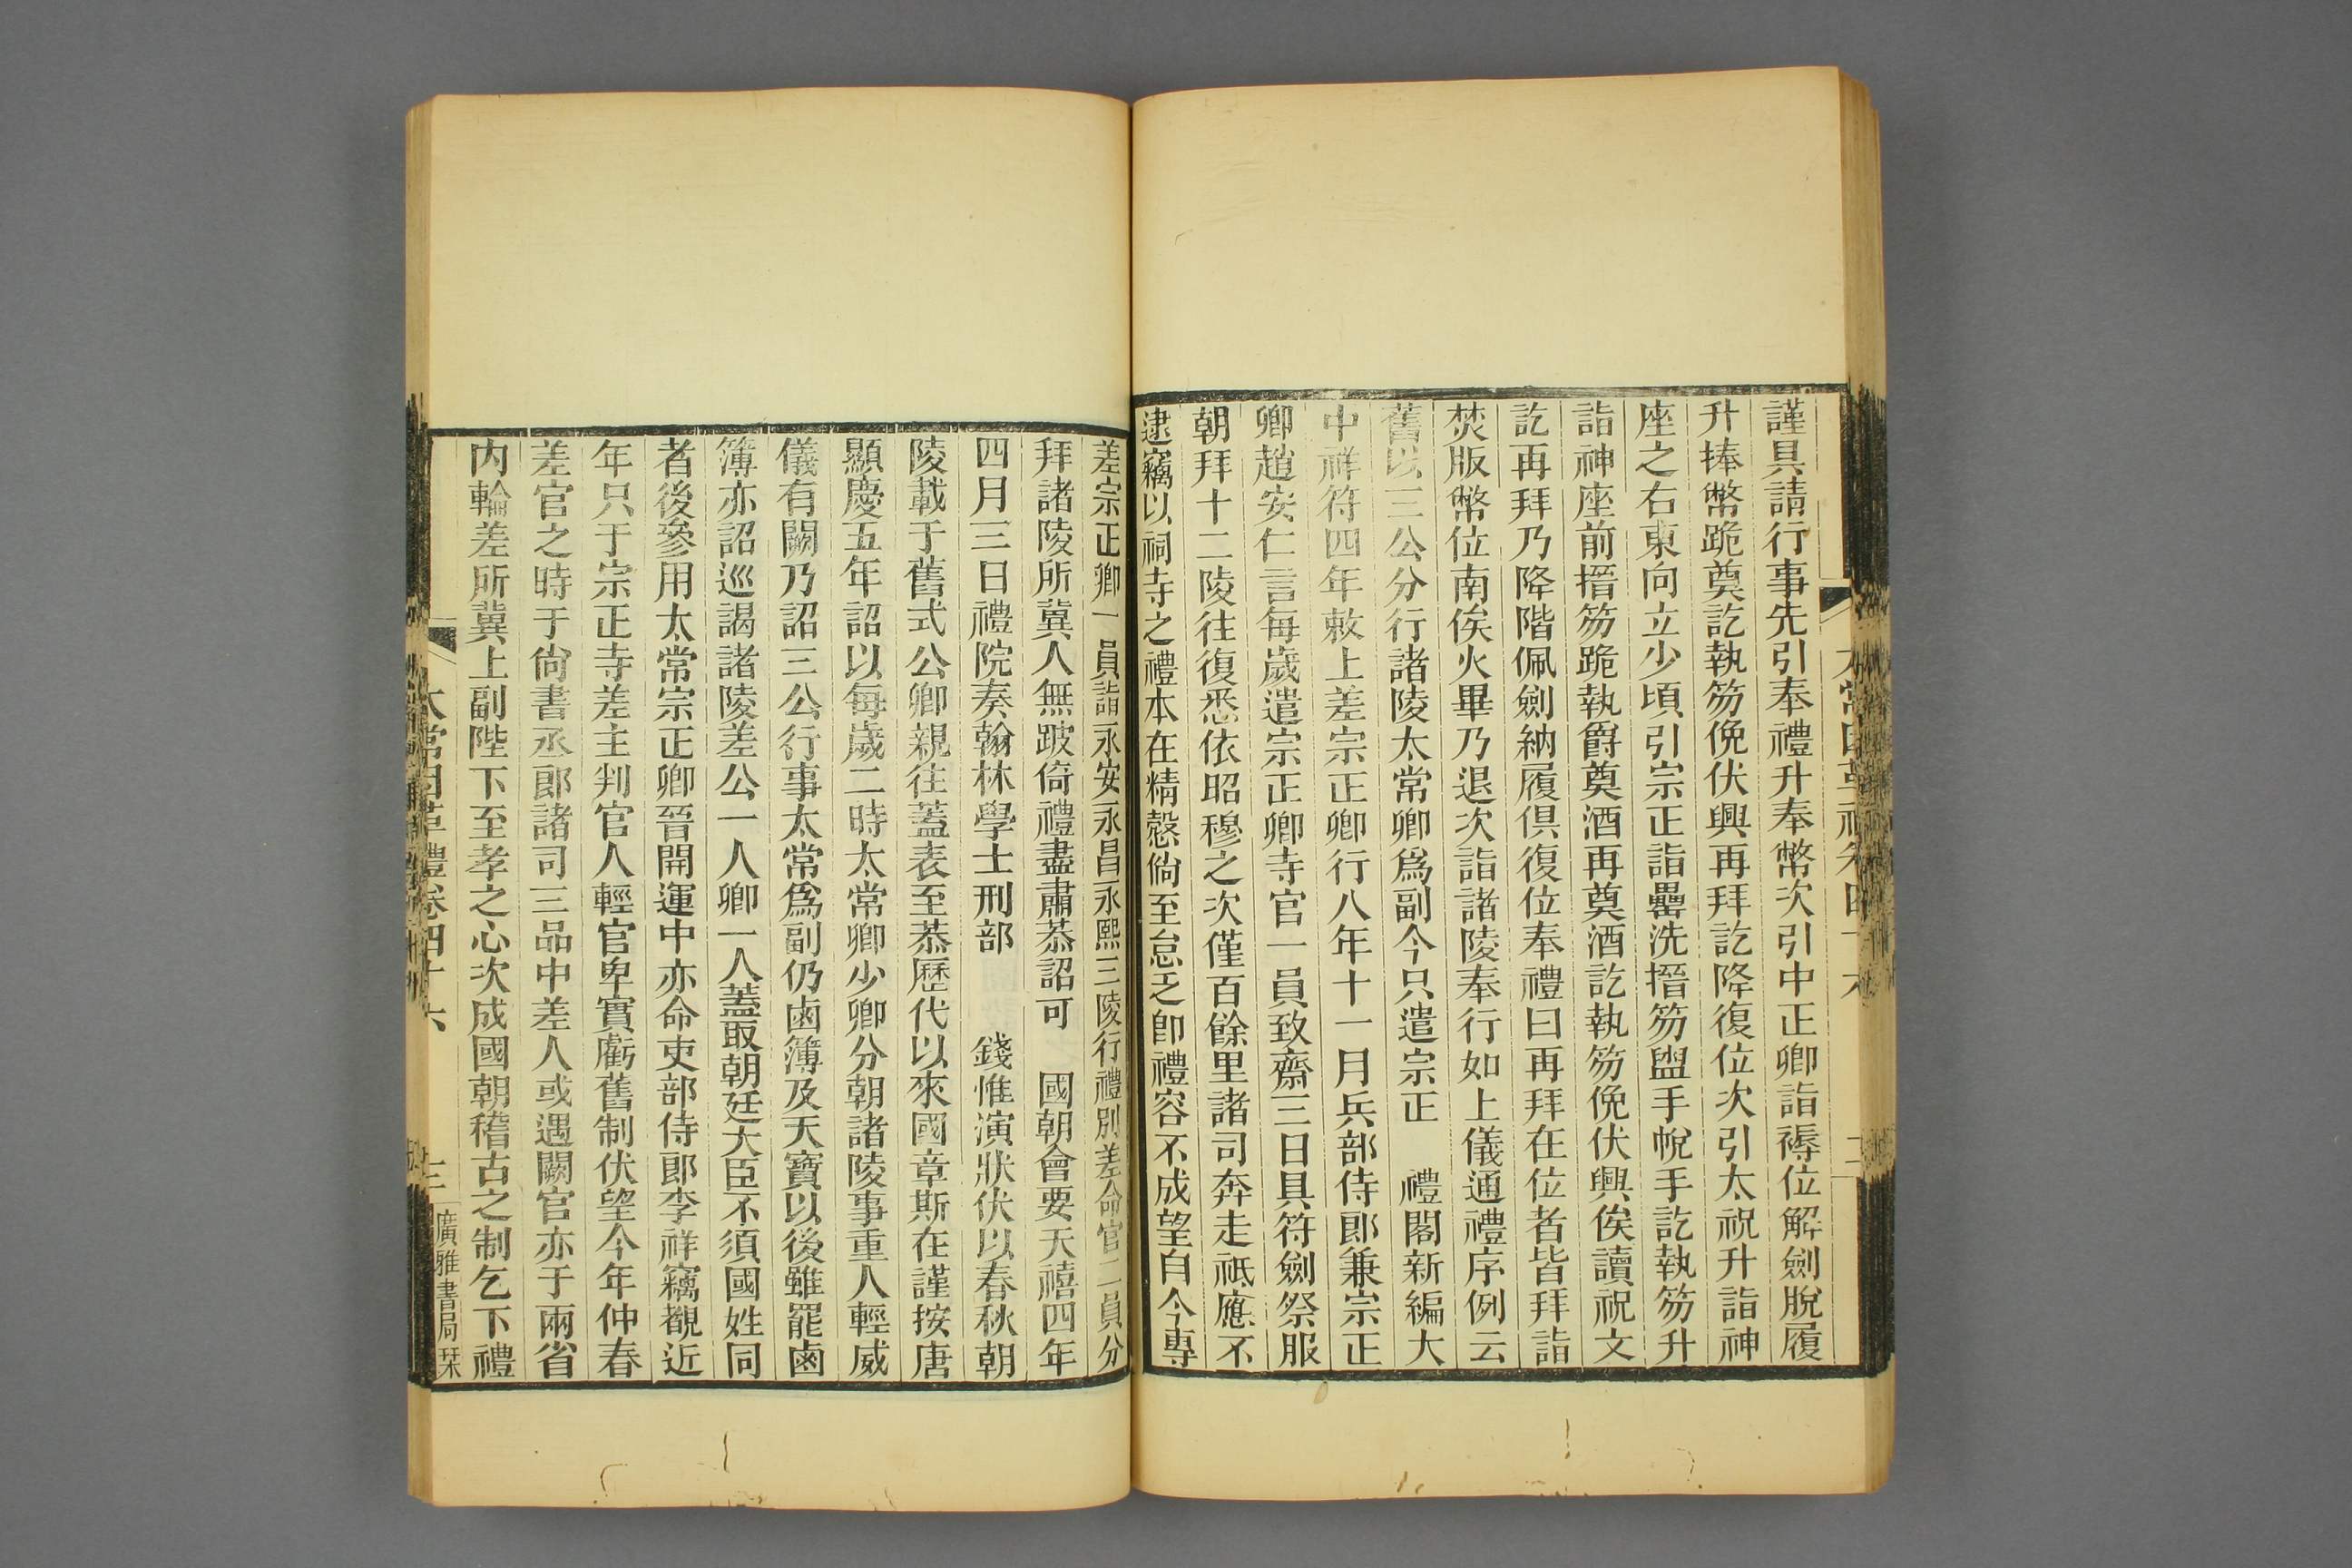 謹具請行事先引奉禮升奉幣次引中正卿詣褥位解劍脫履
升捧幣跪奠訖執笏俛伏興再拜訖降復位次引太祝升詣神
座之右東向立少頃引宗正詣罍洗搢笏盥手帨手訖執笏升
詣神座前搢笏跪執爵奠酒再奠酒訖執笏俛伏興俟讀祝文
訖再拜乃降階佩劍納履俱復位奉禮曰再拜在位者皆拜詣
焚版幣位南俟火畢乃退次詣諸陵奉行如上儀通禮序例云
舊以三公分行諸陵太常卿爲副今只遣宗正　禮閣新編大
中祥符四年敕上差宗正卿行八年十一月兵部侍郎兼宗正
卿趙安仁言每歲遣宗正卿寺官一員致齋三日具符劍祭服
朝拜十二陵往復悉依昭穆之次僅百餘里諸司奔走祗應不
逮竊以祠寺之禮本在精慤倘至怠乏卽禮容不成望自今專
差宗正卿一員詣永安永昌永熙三陵行禮別差命官二員分
拜諸陵所冀人無跛倚禮盡肅恭詔可　國朝會要天禧四年
四月三日禮院奏翰林學士刑部　　錢惟演狀伏以春秋朝
陵載于舊式公卿親往蓋表至恭歷代以來國章斯在謹按唐
顯慶五年詔以每歲二時太常卿少卿分朝諸陵事重人輕威
儀有闕乃詔三公行事太常爲副仍鹵簿及天寶以後雖罷鹵
簿亦詔巡謁諸陵差公一人卿一人蓋取朝廷大臣不須國姓同
者後參用太常宗正卿晉開運中亦命吏部侍郎李祥竊觀近
年只于宗正寺差主判官人輕官卑實虧舊制伏望今年仲春
差官之時于尙書丞郎諸司三品中差人或遇闕官亦于兩省
內輪差所冀上副陛下至孝之心次成國朝稽古之制乞下禮
太常因革禮卷四十六
三
廣雅書局栞